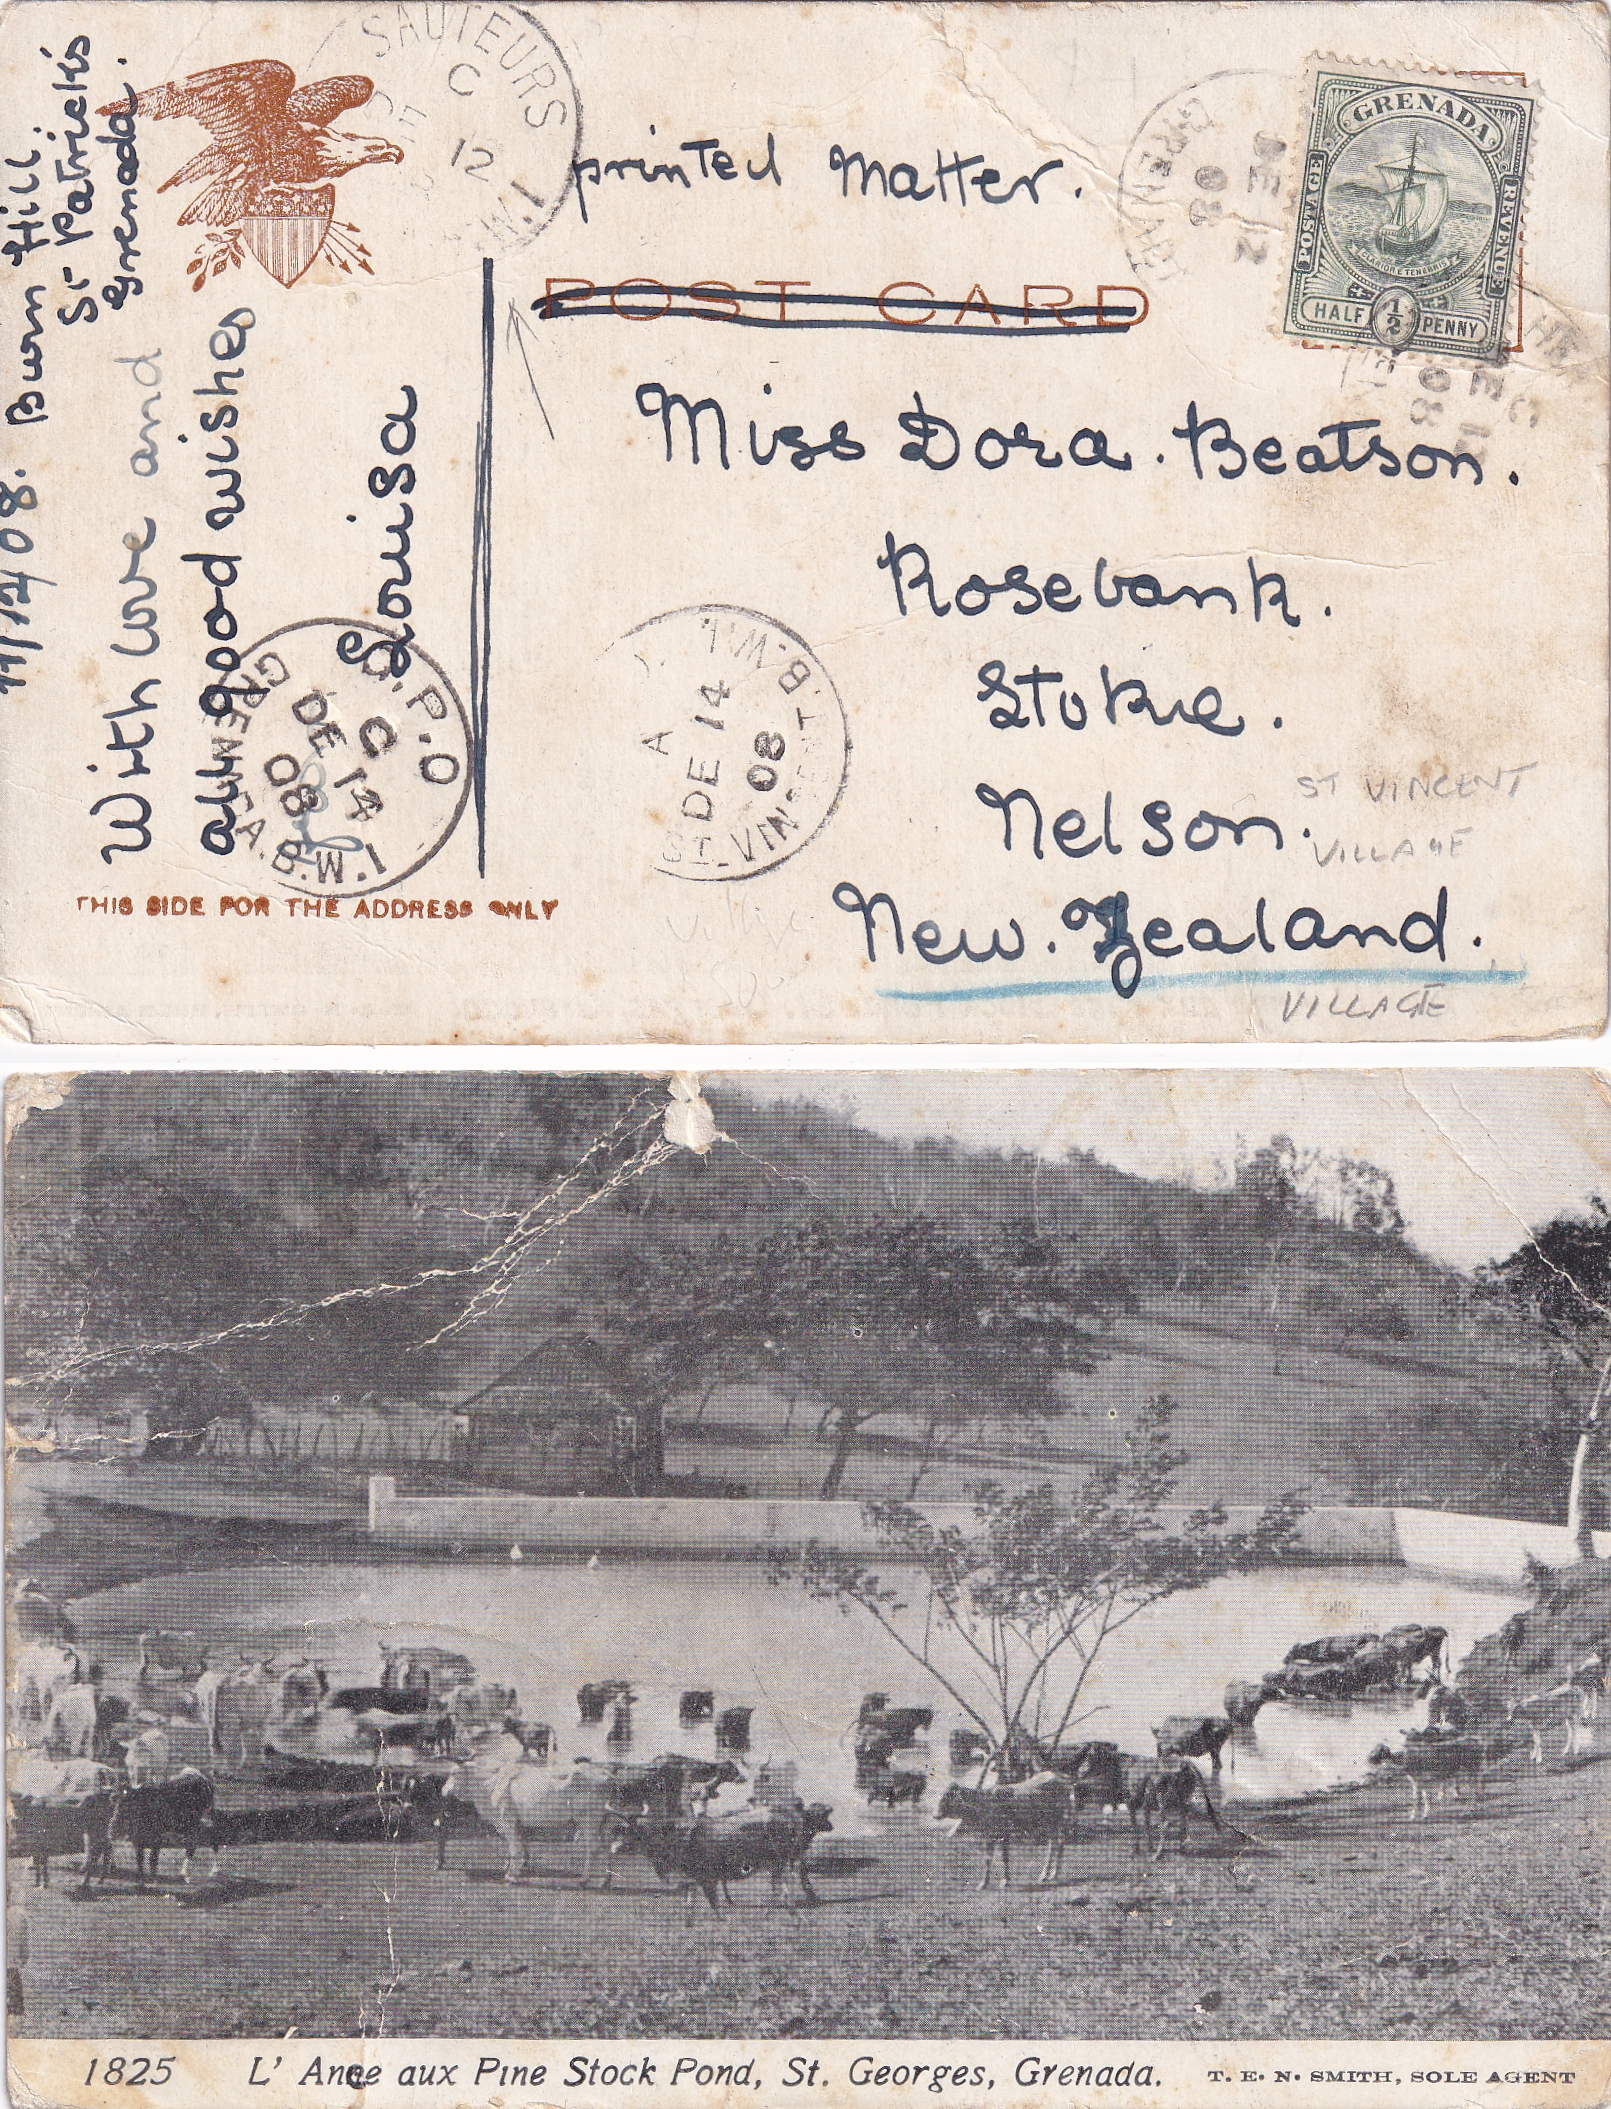 SAUTEURS
C
12
W.I
printed Matter.
GRENADA
DE 12
08
GRENADA
POSTAGE
REVENUE
CLARIOR E TENEBRIS
HALF 1/2 PENNY
POST CARD
11/12/08. Burn Hill
St Patrick's
Grenada.
With love and
all good wishes
Louisa
Miss Dora. Beatson.
Rosebank.
Stoke.
Nelson.
New. Zealand.
G.P.O
C
DE 14
08
GRENADA.B.W.I
A
DE 14
08
ST. VINCENT.B.W.I.
ST VINCENT
VILLAGE
VILLAGE
Village
THIS SIDE FOR THE ADDRESS ONLY
1825 L' Ance aux Pine Stock Pond, St. Georges, Grenada. T. E. N. SMITH, SOLE AGENT